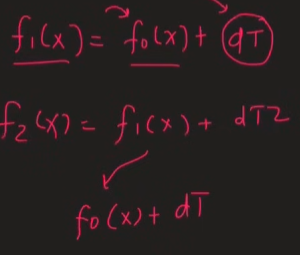 f₁(x) = f₀(x) + dT
f₂(x) = f₁(x) + dT2
f₀(x) + dT